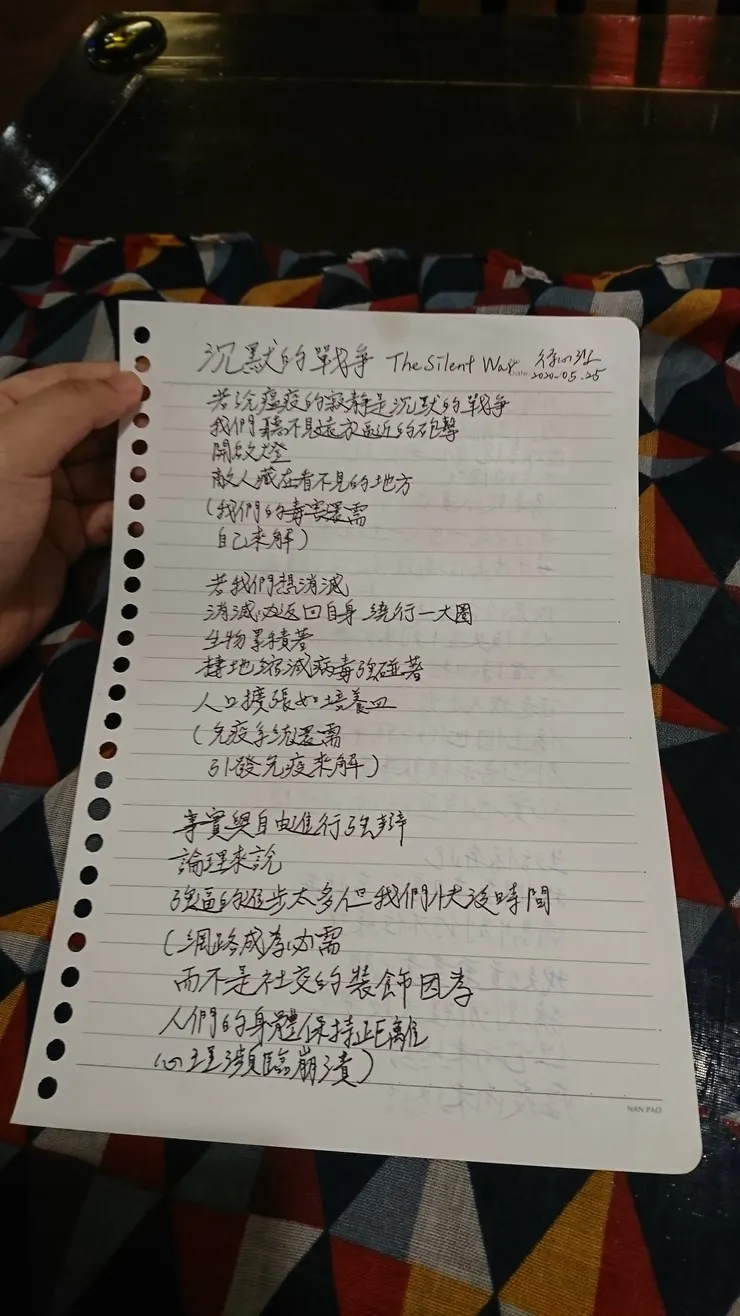 沉默的戰爭 The Silent War
Date 2020.05.25
若說瘟疫的寂靜是沉默的戰爭
我們聽不見遠方逼近的砲擊
開啟大燈
敵人藏在看不見的地方
(我們的毒害還需
自己來解)
若我們想消滅
消滅必返回自身 繞行一大圈
生物累積著
棲地縮減病毒強碰著
人口擴張如培養皿
(免疫系統還需
引發免疫來解)
事實與自由進行強辯
論理來說
強逼的進步太多但我們快沒時間
(網路成為必需
而不是社交的裝飾因素
人們的身體保持距離
心理瀕臨崩潰)
NAN PAO